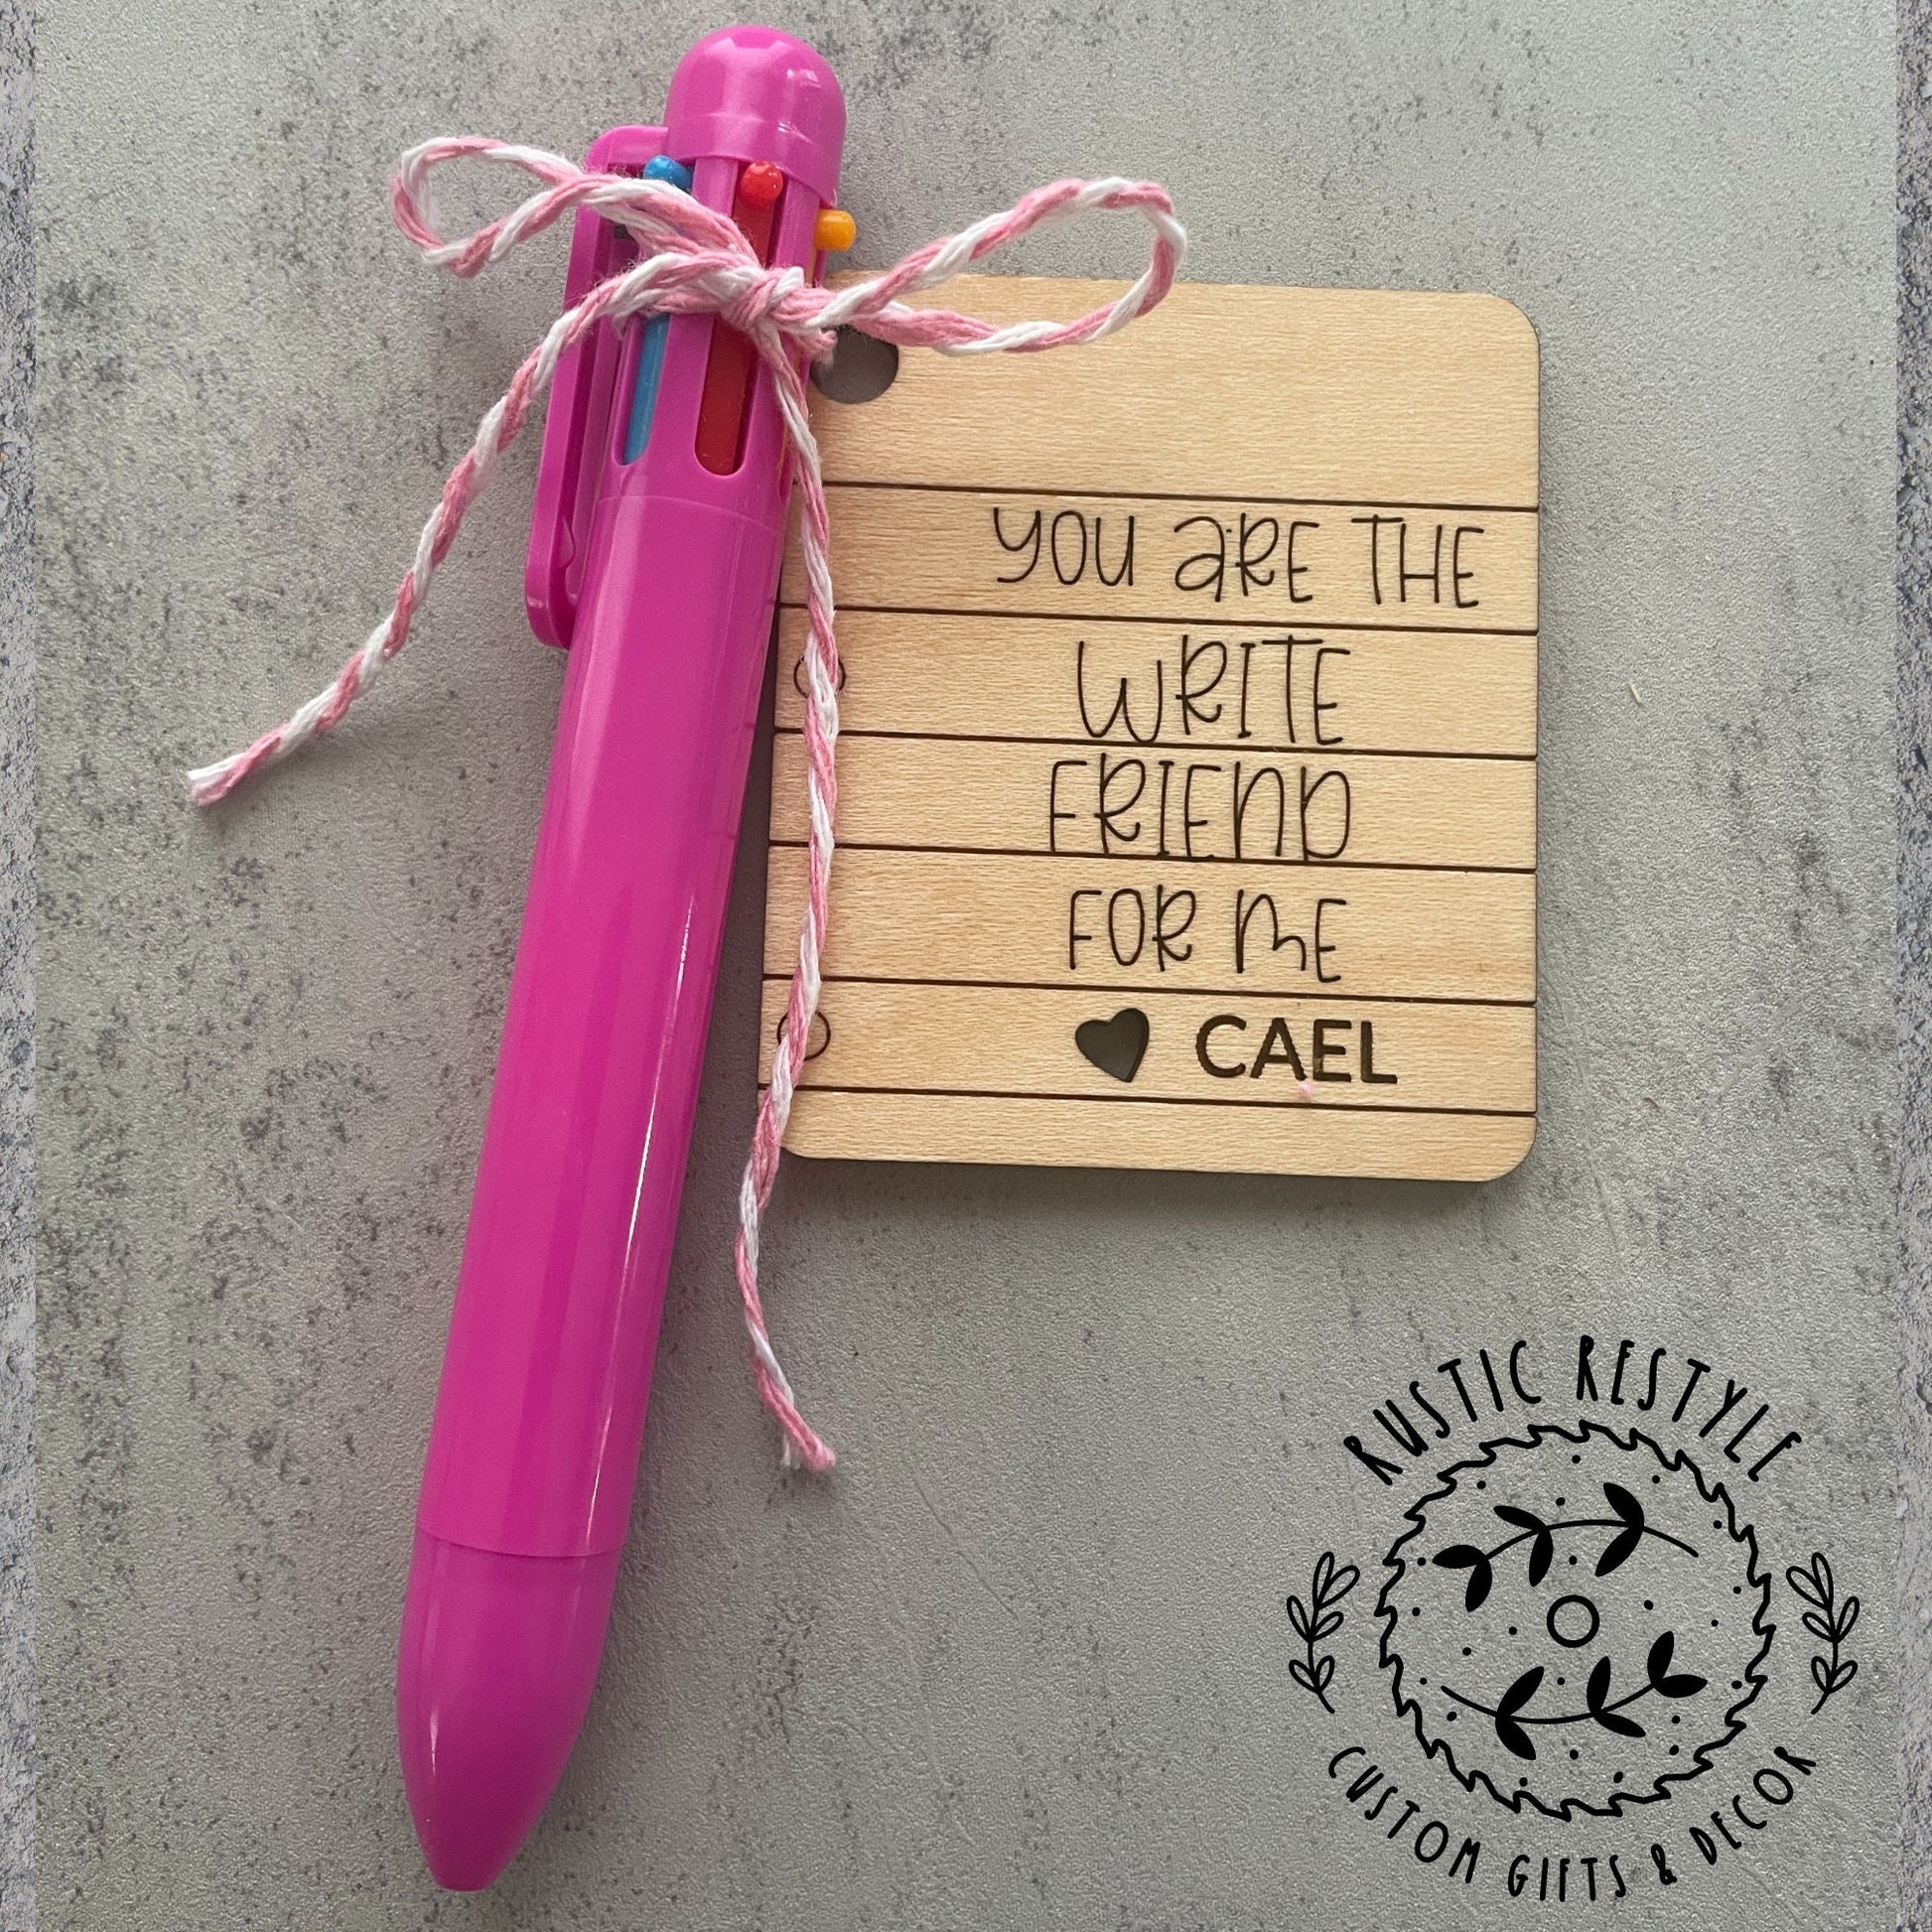 YOU ARE THE
WRITE
FRIEND
FOR ME
CAEL
RUSTIC RESTYLE
CUSTOM GIFTS & DECOR